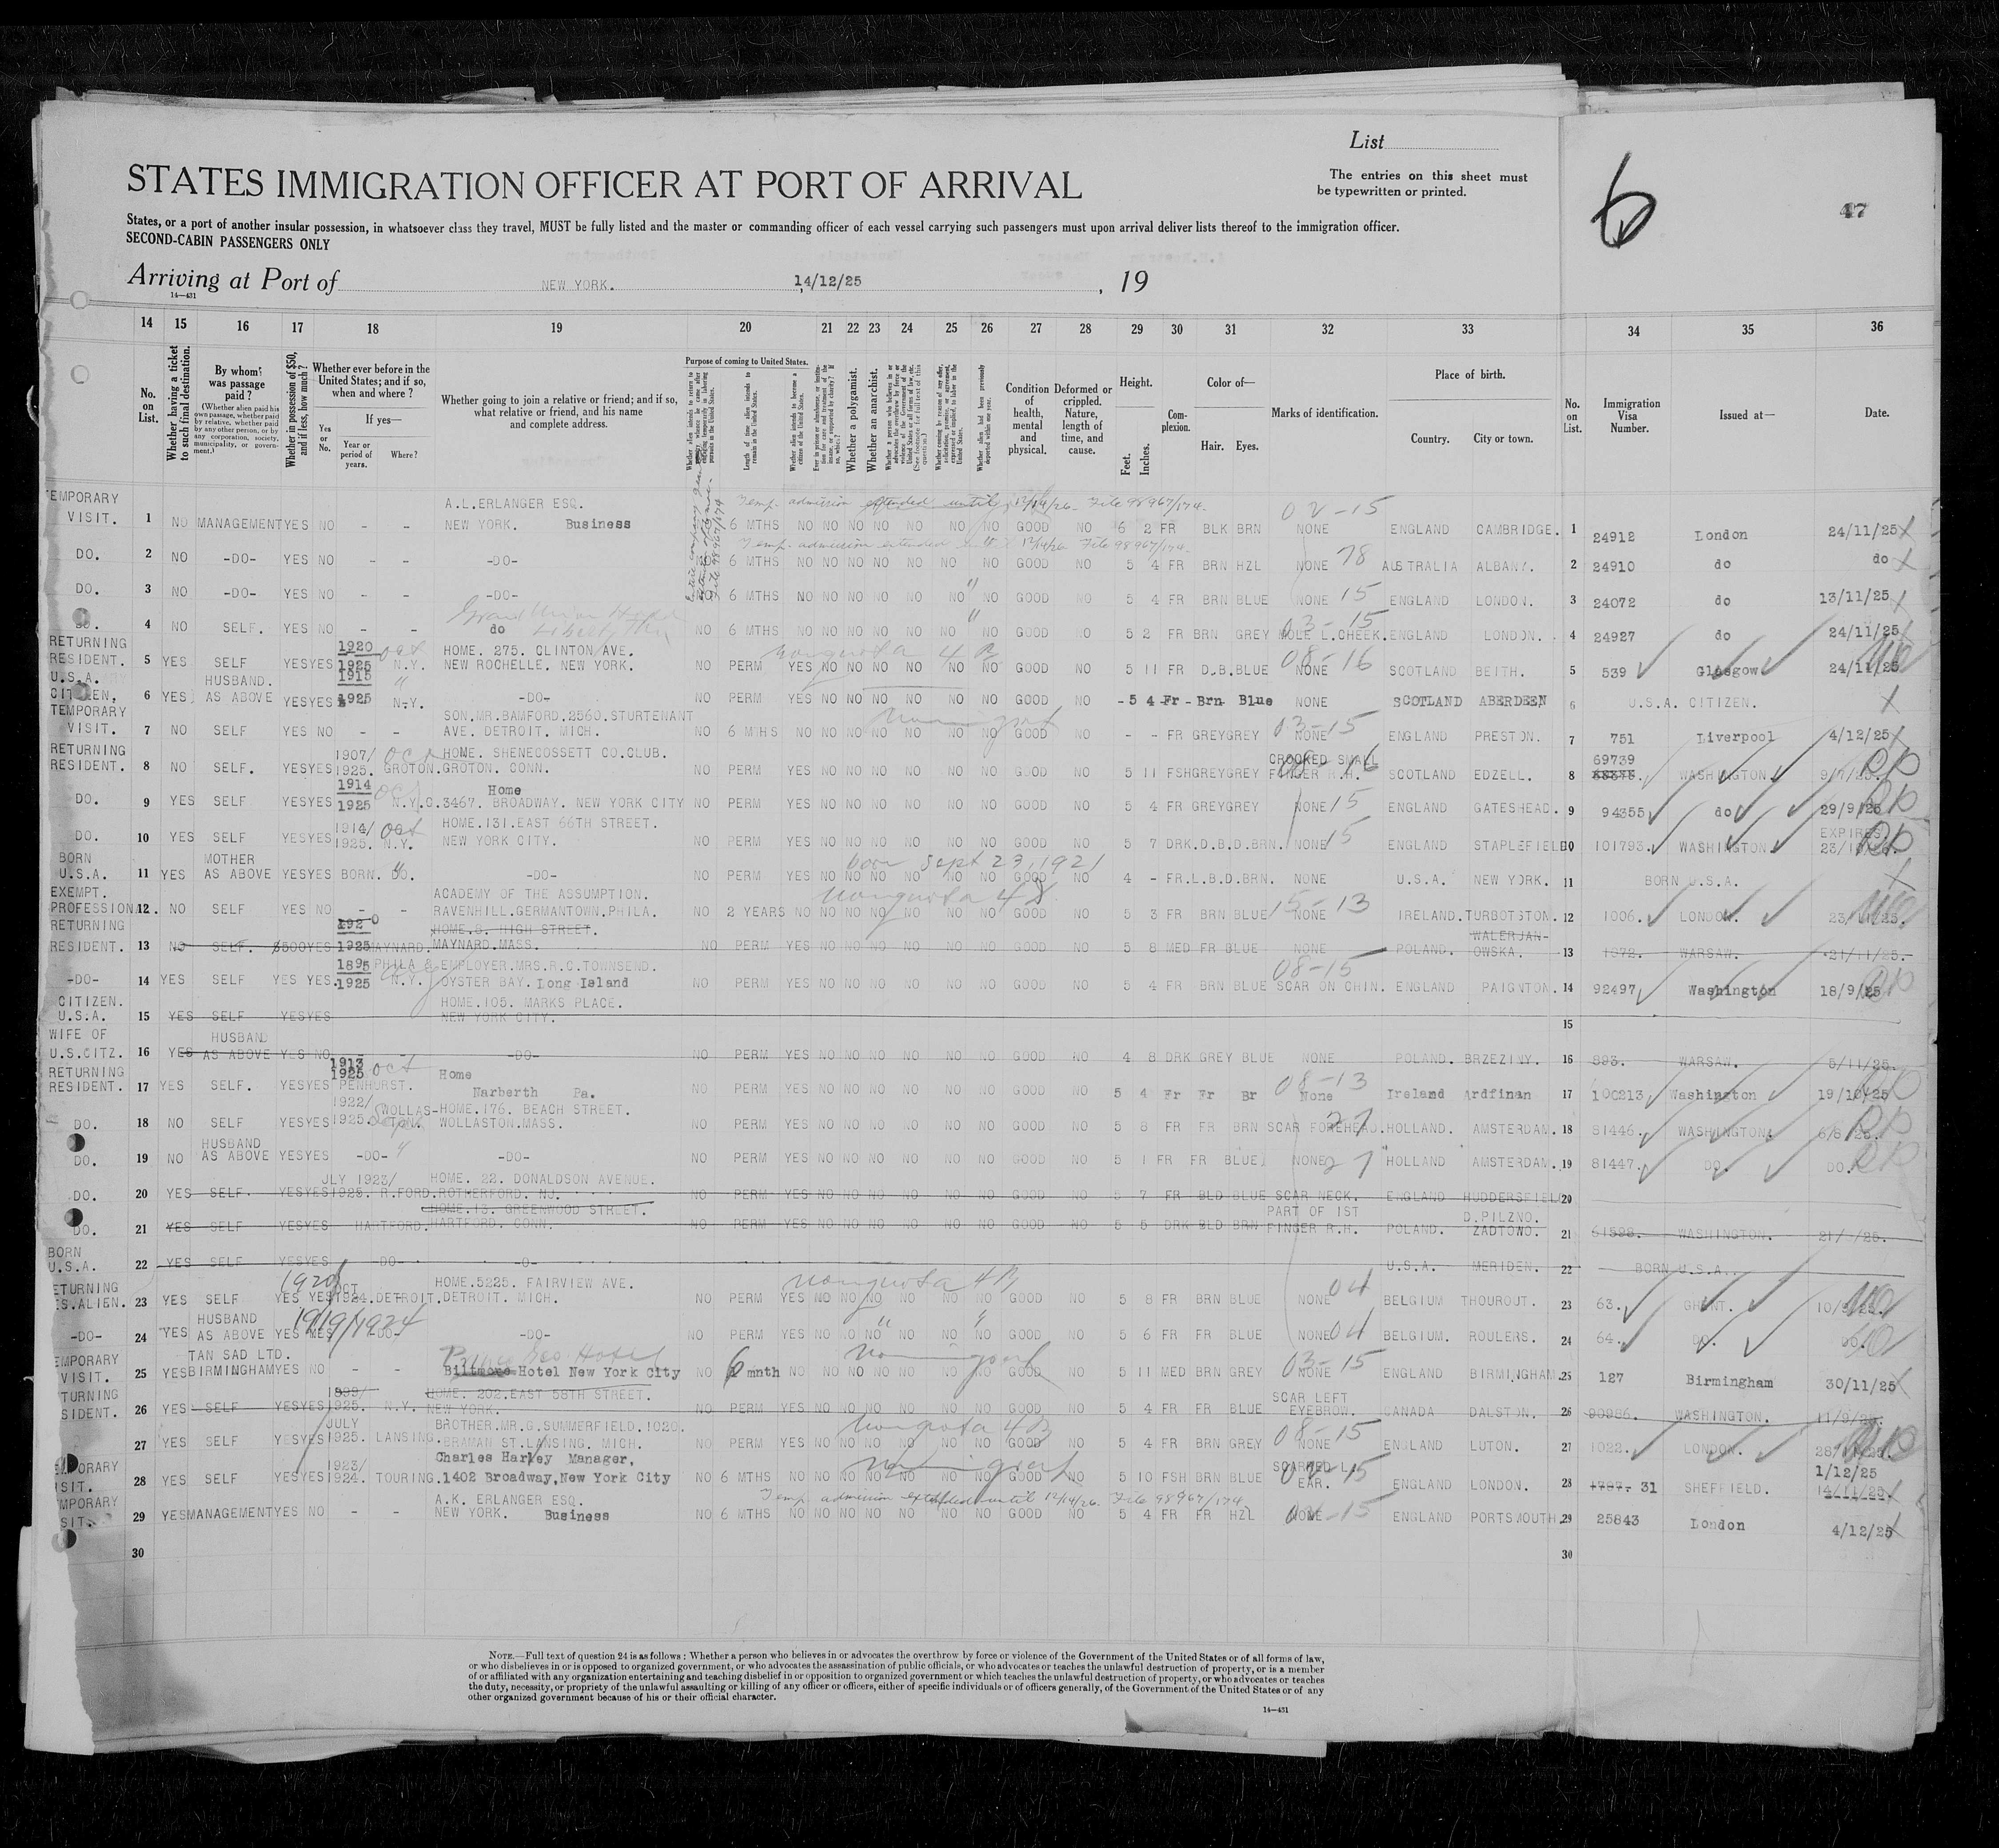 List
STATES IMMIGRATION OFFICER AT PORT OF ARRIVAL
The entries on this sheet must
be typewritten or printed.
6
47
States, or a port of another insular possession, in whatsoever class they travel, MUST be fully listed and the master or commanding officer of each vessel carrying such passengers must upon arrival deliver lists thereof to the immigration officer.
SECOND-CABIN PASSENGERS ONLY
Arriving at Port of NEW YORK. 14/12/25 , 19
14—431
14 15 16 17 18 19 20 21 22 23 24 25 26 27 28 29 30 31 32 33 34 35 36
No. on List.
Whether having a ticket to such final destination.
By whom was passage paid?
(Whether alien paid his own passage, whether paid by relative, whether paid by any other person, or by any corporation, society, municipality, or government.)
Whether in possession of $50, and if less, how much?
Whether ever before in the United States; and if so, when and where?
If yes—
Yes or No.
Year or period of years.
Where?
Whether going to join a relative or friend; and if so, what relative or friend, and his name and complete address.
Purpose of coming to United States.
Length of time alien intends to remain in the United States.
Whether alien intends to become a citizen of the United States.
Whether a polygamist.
Whether an anarchist.
Condition of health, mental and physical.
Deformed or crippled. Nature, length of time, and cause.
Height.
Feet. Inches.
Complexion.
Color of—
Hair. Eyes.
Marks of identification.
Place of birth.
Country. City or town.
No. on List.
Immigration Visa Number.
Issued at—
Date.
A.L.ERLANGER ESQ. Temp. admission extended until 12/14/26. File 98967/174. 02-15
TEMPORARY VISIT. 1 NO MANAGEMENT YES NO - - NEW YORK. Business 6 MTHS NO NO NO NO NO NO NO GOOD NO 6 2 FR BLK BRN NONE ENGLAND CAMBRIDGE. 1 24912 London 24/11/25
Temp. admission extended 12/14/26 File 98967/174.
DO. 2 NO -DO- YES NO - - -DO- 6 MTHS NO NO NO NO NO NO NO GOOD NO 5 4 FR BRN HZL NONE 78 AUSTRALIA ALBANY. 2 24910 do do
DO. 3 NO -DO- YES NO - - -DO- 6 MTHS NO NO NO NO NO NO NO GOOD NO 5 4 FR BRN BLUE NONE 15 ENGLAND LONDON. 3 24072 do 13/11/25
Grand Union Hotel
4 NO SELF. YES NO - - do NO 6 MTHS NO NO NO NO NO NO NO GOOD NO 5 2 FR BRN GREY MOLE L.CHEEK. 03-15 ENGLAND LONDON. 4 24927 do 24/11/25
RETURNING RESIDENT. 5 YES SELF YES YES 1920 1925 Oct N.Y. HOME. 275. CLINTON AVE. NEW ROCHELLE. NEW YORK. NO PERM YES NO NO NO NO NO NO GOOD NO 5 11 FR D.B. BLUE NONE 08-16 SCOTLAND BEITH. 5 539 Glasgow 24/11/25
nonquota 4 B
U.S.A. CITIZEN, 6 YES HUSBAND. AS ABOVE YES YES 1915 1925 N.Y. -DO- NO PERM YES NO NO NO NO NO NO GOOD NO - 5 4 Fr - Brn Blue NONE SCOTLAND ABERDEEN 6 U.S.A. CITIZEN.
TEMPORARY VISIT. 7 NO SELF YES NO - - SON.MR.BAMFORD.2560.STURTENANT AVE. DETROIT. MICH. NO 6 MTHS NO NO NO NO NO NO NO GOOD NO - - FR GREY GREY NONE 03-15 ENGLAND PRESTON. 7 751 Liverpool 4/12/25
RETURNING RESIDENT. 8 NO SELF. YES YES 1907/ 1925. Oct GROTON. HOME. SHENECOSSETT CO.CLUB. GROTON. CONN. NO PERM YES NO NO NO NO NO NO GOOD NO 5 11 FSH GREY GREY CROOKED SMALL FINGER R.H. SCOTLAND EDZELL. 8 69739 WASHINGTON.
DO. 9 YES SELF YES YES 1914 1925 N.Y.C. Home 3467. BROADWAY. NEW YORK CITY NO PERM YES NO NO NO NO NO NO GOOD NO 5 4 FR GREY GREY NONE 15 ENGLAND GATESHEAD. 9 94355 do 29/9/25
DO. 10 YES SELF YES YES 1914/ 1925. Oct N.Y. HOME.131.EAST 66TH STREET. NEW YORK CITY. NO PERM YES NO NO NO NO NO NO GOOD NO 5 7 DRK. D.B. D.BRN. NONE 15 ENGLAND STAPLEFIELD 10 101793. WASHINGTON. EXPIRES
born Sept 23, 1921
BORN U.S.A. 11 YES MOTHER AS ABOVE YES YES BORN. -DO- NO PERM YES NO NO NO NO NO NO GOOD NO 4 - FR. L.B. D.BRN. NONE U.S.A. NEW YORK. 11 BORN U.S.A.
EXEMPT. PROFESSIONAL. 12 NO SELF YES NO - - ACADEMY OF THE ASSUMPTION. RAVENHILL.GERMANTOWN.PHILA. NO 2 YEARS NO NO NO NO NO NO NO GOOD NO 5 3 FR BRN BLUE NONE 15-13 IRELAND. TURBOTSTON. 12 1006. LONDON.
RETURNING RESIDENT. 13 NO SELF. $500 YES 1920 1925 MAYNARD. HOME.3. HIGH STREET. MAYNARD.MASS. NO PERM YES NO NO NO NO NO NO GOOD NO 5 8 MED FR BLUE NONE POLAND. WALERJANOWSKA. 13 1072. WARSAW. 21/11/25.
-DO- 14 YES SELF YES YES. 1895 1925 PHILA & N.Y. EMPLOYER.MRS.R.C.TOWNSEND. OYSTER BAY. Long Island NO PERM YES NO NO NO NO NO NO GOOD NO 5 4 FR BRN BLUE SCAR ON CHIN. 08-15 ENGLAND PAIGNTON. 14 92497 Washington 18/9/25
CITIZEN. U.S.A. 15 YES SELF YES YES HOME.105. MARKS PLACE. NEW YORK CITY. 15
WIFE OF U.S.CITZ. 16 YES HUSBAND AS ABOVE YES NO - - -DO- NO PERM YES NO NO NO NO NO NO GOOD NO 4 8 DRK GREY BLUE NONE POLAND. BRZEZINY. 16 893. WARSAW. 5/11/25.
RETURNING RESIDENT. 17 YES SELF. YES YES 1913 1925 Oct PENHURST. Home Narberth Pa. NO PERM YES NO NO NO NO NO NO GOOD NO 5 4 Fr Fr Br None 08-13 Ireland Ardfinan 17 100213 Washington 19/10/25
DO. 18 NO SELF YES YES 1922/ 1925. WOLLASTON. HOME.176. BEACH STREET. WOLLASTON.MASS. NO PERM YES NO NO NO NO NO NO GOOD NO 5 8 FR FR BRN SCAR FOREHEAD. 27 HOLLAND. AMSTERDAM. 18 81446. WASHINGTON.
DO. 19 NO HUSBAND AS ABOVE YES YES -DO- -DO- NO PERM YES NO NO NO NO NO NO GOOD NO 5 1 FR FR BLUE. NONE 27 HOLLAND AMSTERDAM. 19 81447. DO. DO.
DO. 20 YES SELF. YES YES JLY 1923/ 1925. R.FORD. HOME. 22. DONALDSON AVENUE. ROTHERFORD. NJ. NO PERM YES NO NO NO NO NO NO GOOD NO 5 7 FR BLD BLUE SCAR NECK. ENGLAND HUDDERSFIELD 20
DO. 21 YES SELF YES YES HARTFORD. HOME.13. GREENWOOD STREET. HARTFORD. CONN. NO PERM YES NO NO NO NO NO NO GOOD NO 5 5 DRK BLD BRN PART OF 1ST FINGER R.H. POLAND. D.PILZNO. ZADTOWO. 21 61598. WASHINGTON.
BORN U.S.A. 22 YES SELF YES YES DO- -O- U.S.A. MERIDEN. 22 BORN U.S.A.
RETURNING RES.ALIEN. 23 YES SELF YES YES 1920/ OCT 1924. DETROIT. HOME.5225. FAIRVIEW AVE. DETROIT. MICH. nonquota 4 B NO PERM YES NO NO NO NO NO NO GOOD NO 5 8 FR BRN BLUE NONE 04 BELGIUM THOUROUT. 23 63. GHENT.
-DO- 24 YES HUSBAND AS ABOVE YES YES 1919/1924 -DO- NO PERM YES NO NO NO NO NO NO GOOD NO 5 6 FR FR BLUE NONE 04 BELGIUM. ROULERS. 24 64. DO. DO.
TEMPORARY VISIT. 25 YES TAN SAD LTD. BIRMINGHAM YES NO - - Biltmore Hotel New York City NO 6 mnth NO NO NO NO NO NO NO GOOD NO 5 11 MED BRN GREY NONE 03-15 ENGLAND BIRMINGHAM. 25 127 Birmingham 30/11/25
RETURNING RESIDENT. 26 YES SELF YES YES 1899/ 1925. N.Y. HOME. 202.EAST 58TH STREET. NEW YORK. NO PERM YES NO NO NO NO NO NO GOOD NO 5 4 FR FR BLUE SCAR LEFT EYEBROW. CANADA DALSTON. 26 90986. WASHINGTON. 11/9/25.
27 YES SELF YES YES JULY 1925. LANSING. BROTHER.MR.G.SUMMERFIELD.1020. BRAMAN ST.LANSING. MICH. nonquota 4 B NO PERM YES NO NO NO NO NO NO GOOD NO 5 4 FR BRN GREY NONE 08-15 ENGLAND LUTON. 27 1022. LONDON.
TEMPORARY VISIT. 28 YES SELF YES YES 1923/ 1924. TOURING. Charles Harley Manager, 1402 Broadway,New York City NO 6 MTHS NO NO NO NO NO NO NO GOOD NO 5 10 FSH BRN BLUE SCARRED L. EAR. 02-15 ENGLAND LONDON. 28 1787. 31 SHEFFIELD. 1/12/25 14/11/25
Temp. admission extended until 12/14/26. File 98967/174
TEMPORARY VISIT. 29 YES MANAGEMENT YES NO - - A.K. ERLANGER ESQ. NEW YORK. Business NO 6 MTHS NO NO NO NO NO NO NO GOOD NO 5 4 FR FR HZL NONE 02-15 ENGLAND PORTSMOUTH. 29 25843 London 4/12/25
30 30
NOTE.—Full text of question 24 is as follows: Whether a person who believes in or advocates the overthrow by force or violence of the Government of the United States or of all forms of law,
or who disbelieves in or is opposed to organized government, or who advocates the assassination of public officials, or who advocates or teaches the unlawful destruction of property, or is a member
of or affiliated with any organization entertaining and teaching disbelief in or opposition to organized government or which teaches the unlawful destruction of property, or who advocates or teaches
the duty, necessity, or propriety of the unlawful assaulting or killing of any officer or officers, either of specific individuals or of officers generally, of the Government of the United States or of any
other organized government because of his or their official character.
14—431